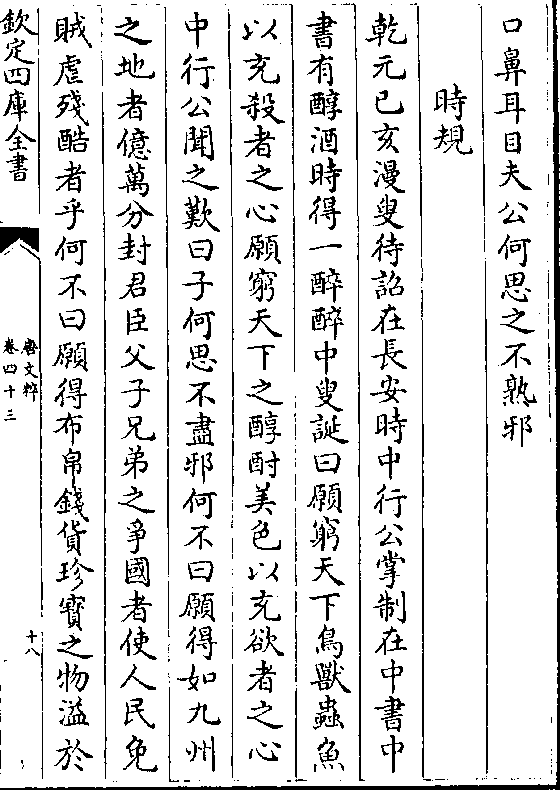 口鼻耳目夫公何思之不熟邪
時規
乾元已亥漫叟待詔在長安時中行公掌制在中書中
書有醇酒時得一醉醉中叟誕曰願窮天下鳥獸蟲魚
以充殺者之心願窮天下之醇酎美色以充欲者之心
中行公聞之歎曰子何思不盡邪何不曰願得如九州
之地者億萬分封君臣父子兄弟之爭國者使人民免
賊虐殘酷者乎何不曰願得布帛錢貨珍寳之物溢於
欽定四庫全書
唐文粹
卷四十三
十八